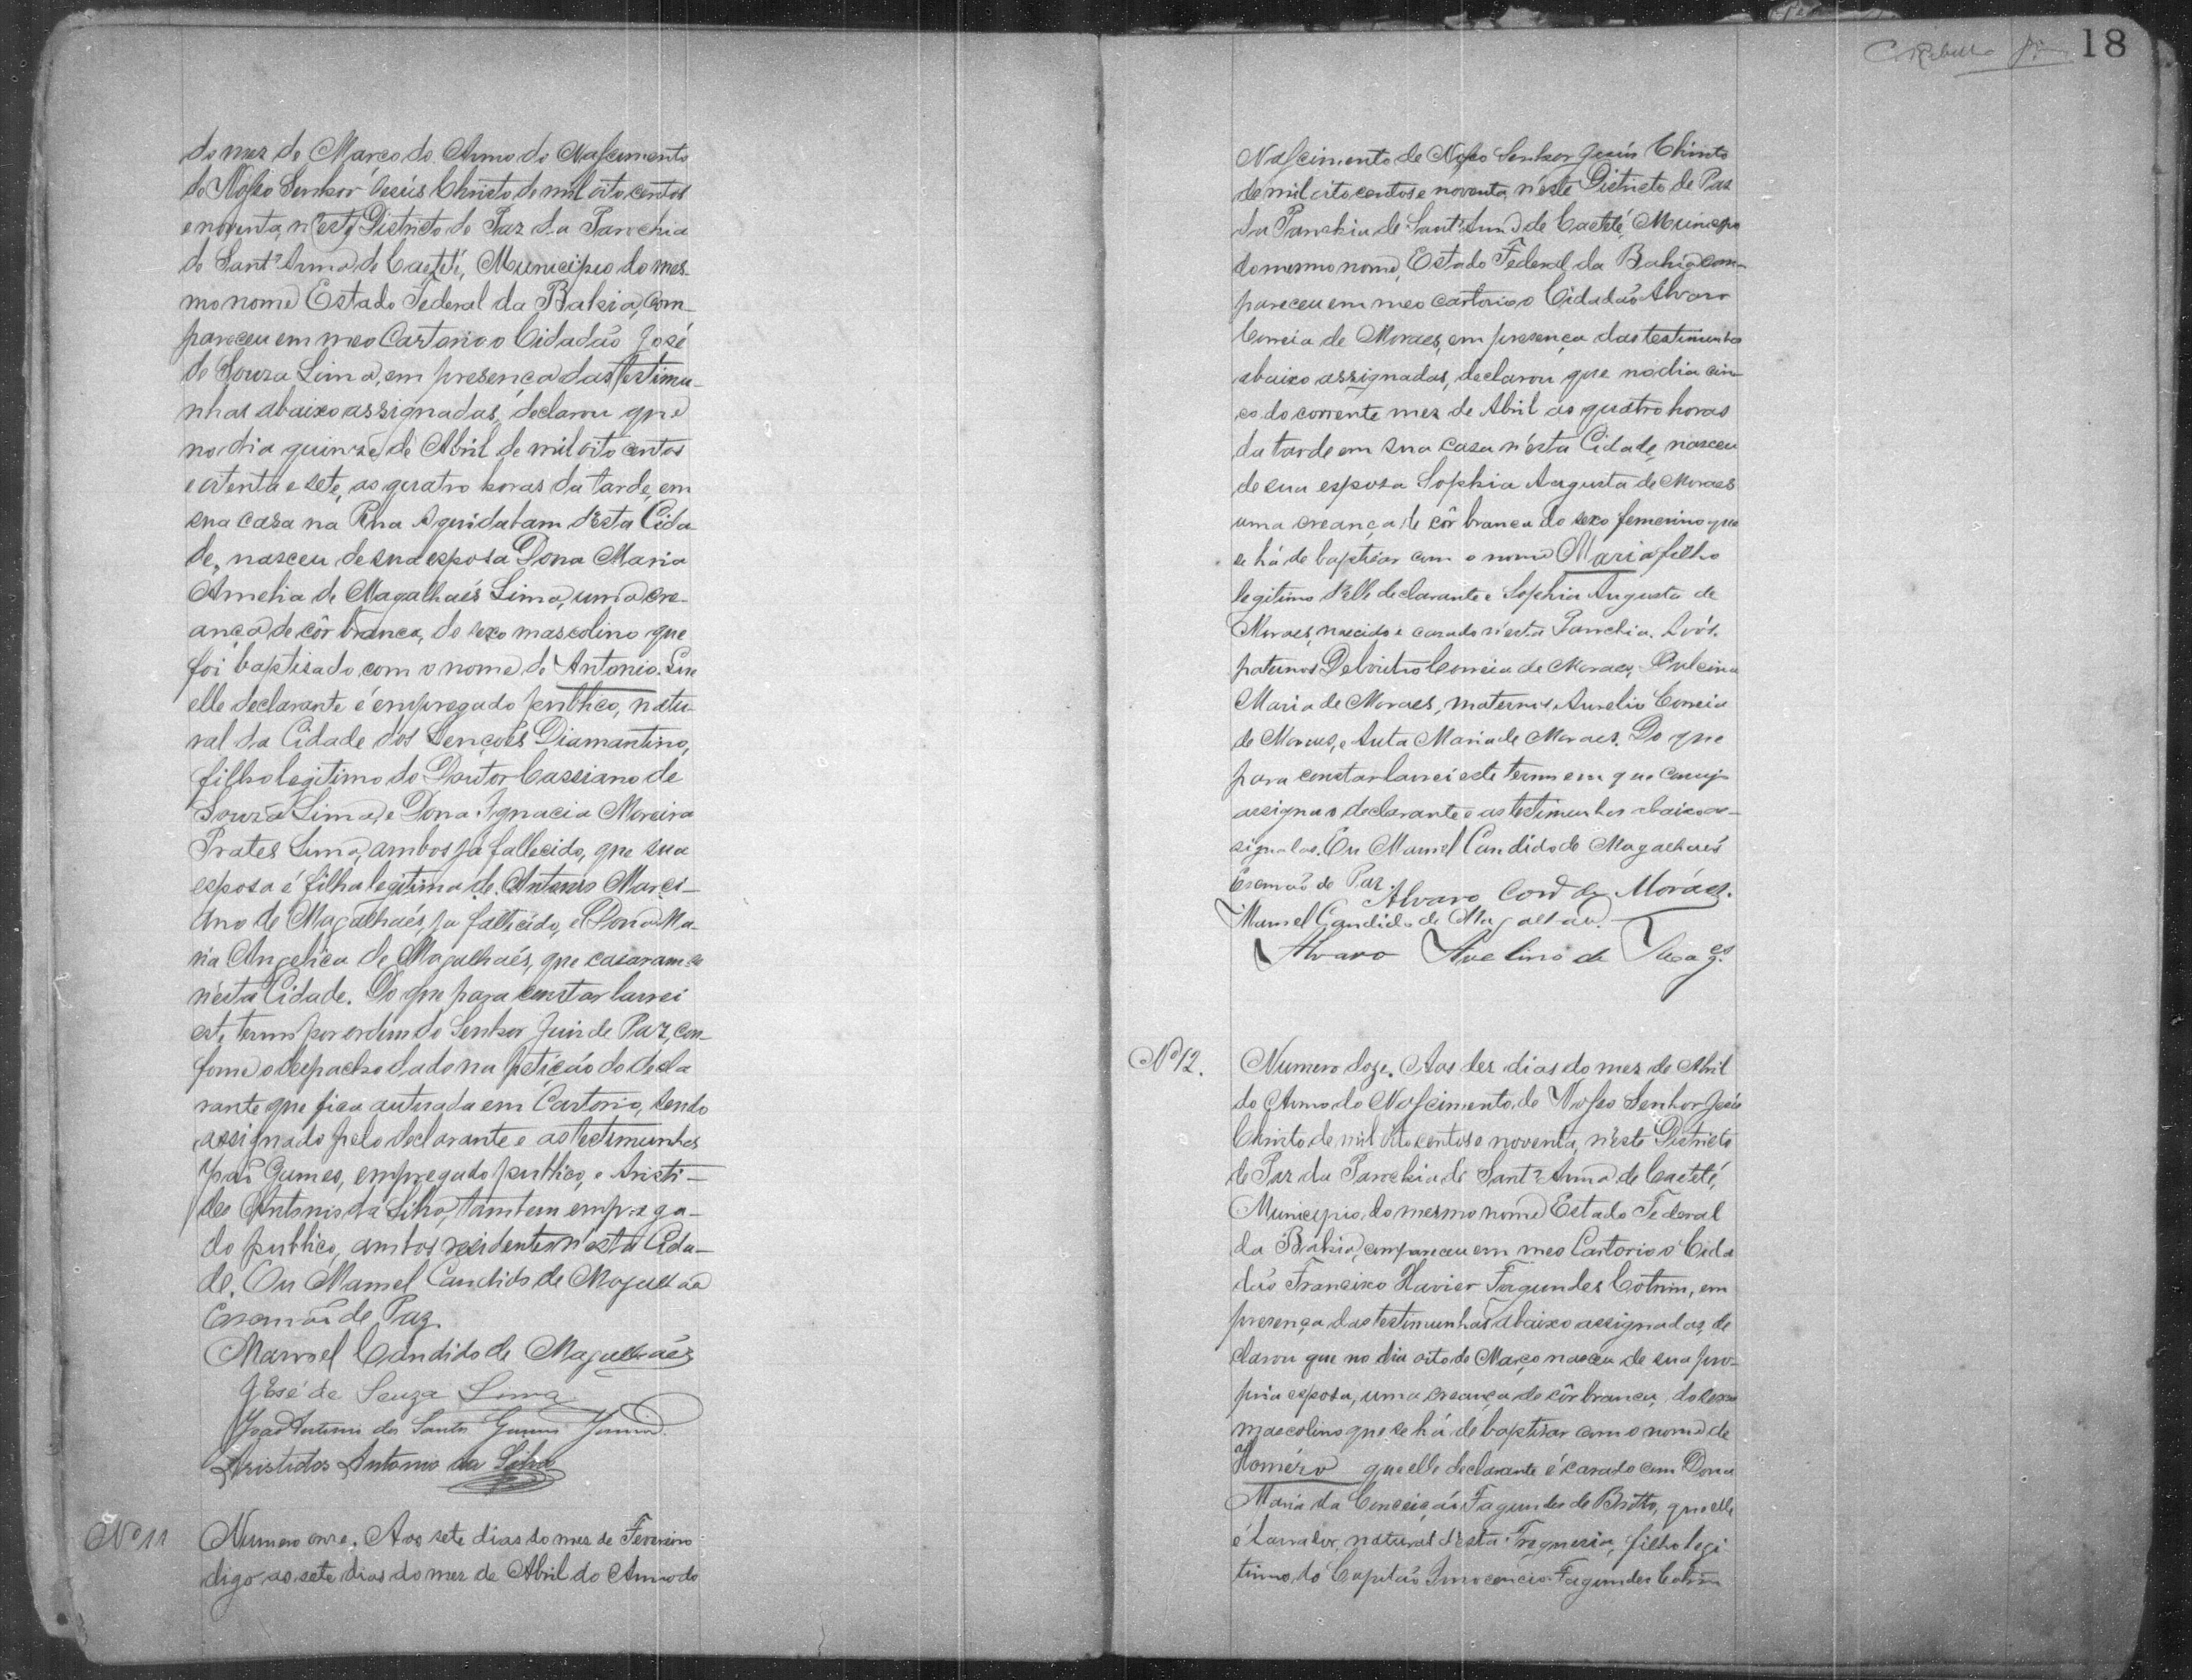 do mez de Março do Anno do Nascimento
de Nosso Senhor Jesús Christo de mil oito centos
e noventa, n'este Districto de Paz da Parochia
de Sant'Anna de Caeteté, Municipio do mes-
mo nome Estado Federal da Bahia, com-
pareceu em meo Cartorio o Cidadão José
de Souza Lima, em presença das testimu-
nhas abaixo assignadas, declarou que
no dia quinze de Abril de mil oito centos
e oitenta e sete, as quatro horas da tarde, em
sua casa na Rua Aquidaban d'esta Cida
de, nasceu de sua esposa Dona Maria
Amelia de Magalhaés Lima, uma cre-
ança de côr branca, do sexo mascolino que
foi baptisado com o nome de Antonio. Que
elle declarante é empregado publico, natu-
ral da Cidade dos Lençoés Diamantino,
filho legitimo do Doutor Cassiano de
Souza Lima, e Dona Ignacia Moreira
Prates Lima, ambos já fallecido, que sua
esposa é filha legitima de Antonio Marci-
ano de Magalhaés, ja fallecido, e Dona Ma-
ria Angelica de Magalhaés, que casaram-se
n'esta Cidade. Do que para constar lavrei
este termo por ordem do Senhor Juiz de Paz, con-
forme o despacho dado na petição do decla
rante que fica autuada em Cartorio, sendo
assignado pelo declarante e as testimunhas
João Gumes, empregado publico, e Aristi-
des Antonio da Silva, tambem emprega-
do publico, ambos residentes n'esta Cida-
de. Eu Manoel Candido de Magalhães
Escrivão de Paz.
Manoel Candido de Magalhaés
José de Souza Lima
João Antonio dos Santos Gumes Junior
Aristides Antonio da Silva
Nº 11 Numero onze. Aos sete dias do mez de Fevereiro
digo ao sete dias do mez de Abril do Anno do
18
Nascimento de Nosso Senhor Jesús Christo
de mil oito centos e noventa, n'este Districto de Paz
da Parochia de Sant'Anna de Caeteté, Municipio
do mesmo nome, Estado Federal da Bahia, com-
pareceu em meo cartorio o Cidadão Alvaro
Correia de Moraes, em presença das testimunhas
abaixo assignadas, declarou que no dia cin-
co do corrente mez de Abril as quatro horas
da tarde em sua casa n'esta Cidade, nasceu
de sua esposa Sophia Augusta de Moraes
uma creança de côr branca do sexo femenino que
se há de baptisar com o nome Maria filho
legitimo d'elle declarante e Sophia Augusta de
Moraes, nascido e casado n'esta Parochia. Avós
paternos Correia de Moraes,
Maria de Moraes, maternos Aurelio Correia
de Moraes, e Auta Maria de Moraes. Do que
para constar lavrei este termo em que comigo
assigna o declarante e as testimunhas abaixo as-
signadas. Eu Manoel Candido de Magalhaés
Escrivão de Paz.
Alvaro Corrª de Moráes.
Manoel Candido de Magalhães.
Alvaro Avelino de
Nº 12. Numero doze. Aos dez dias do mez de Abril
do Anno do Nascimento de Nosso Senhor Jesús
Christo de mil oito centos e noventa, n'este Districto
de Paz da Parochia de Sant'Anna de Caeteté,
Municipio do mesmo nome Estado Federal
da Bahia, compareceu em meo Cartorio o Cida
dão Francisco Xavier Fagundes Cotrim, em
presença das testimunhas abaixo assignadas, de
clarou que no dia oito de Março nasceu de sua pro-
pria esposa, uma creança de côr branca, do sexo
mascolino que se há de baptisar com o nome de
Homéro que elle declarante é casado com Dona
Maria da Conceição Fagundes de Britto, que elle
é Lavrador, natural d'esta Freguesia, filho legi-
timo do Capitão Innocencio Fagundes Cotrim